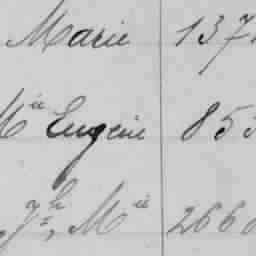 Marie 137
Mie Eugénie 853
Jh, Mie 266